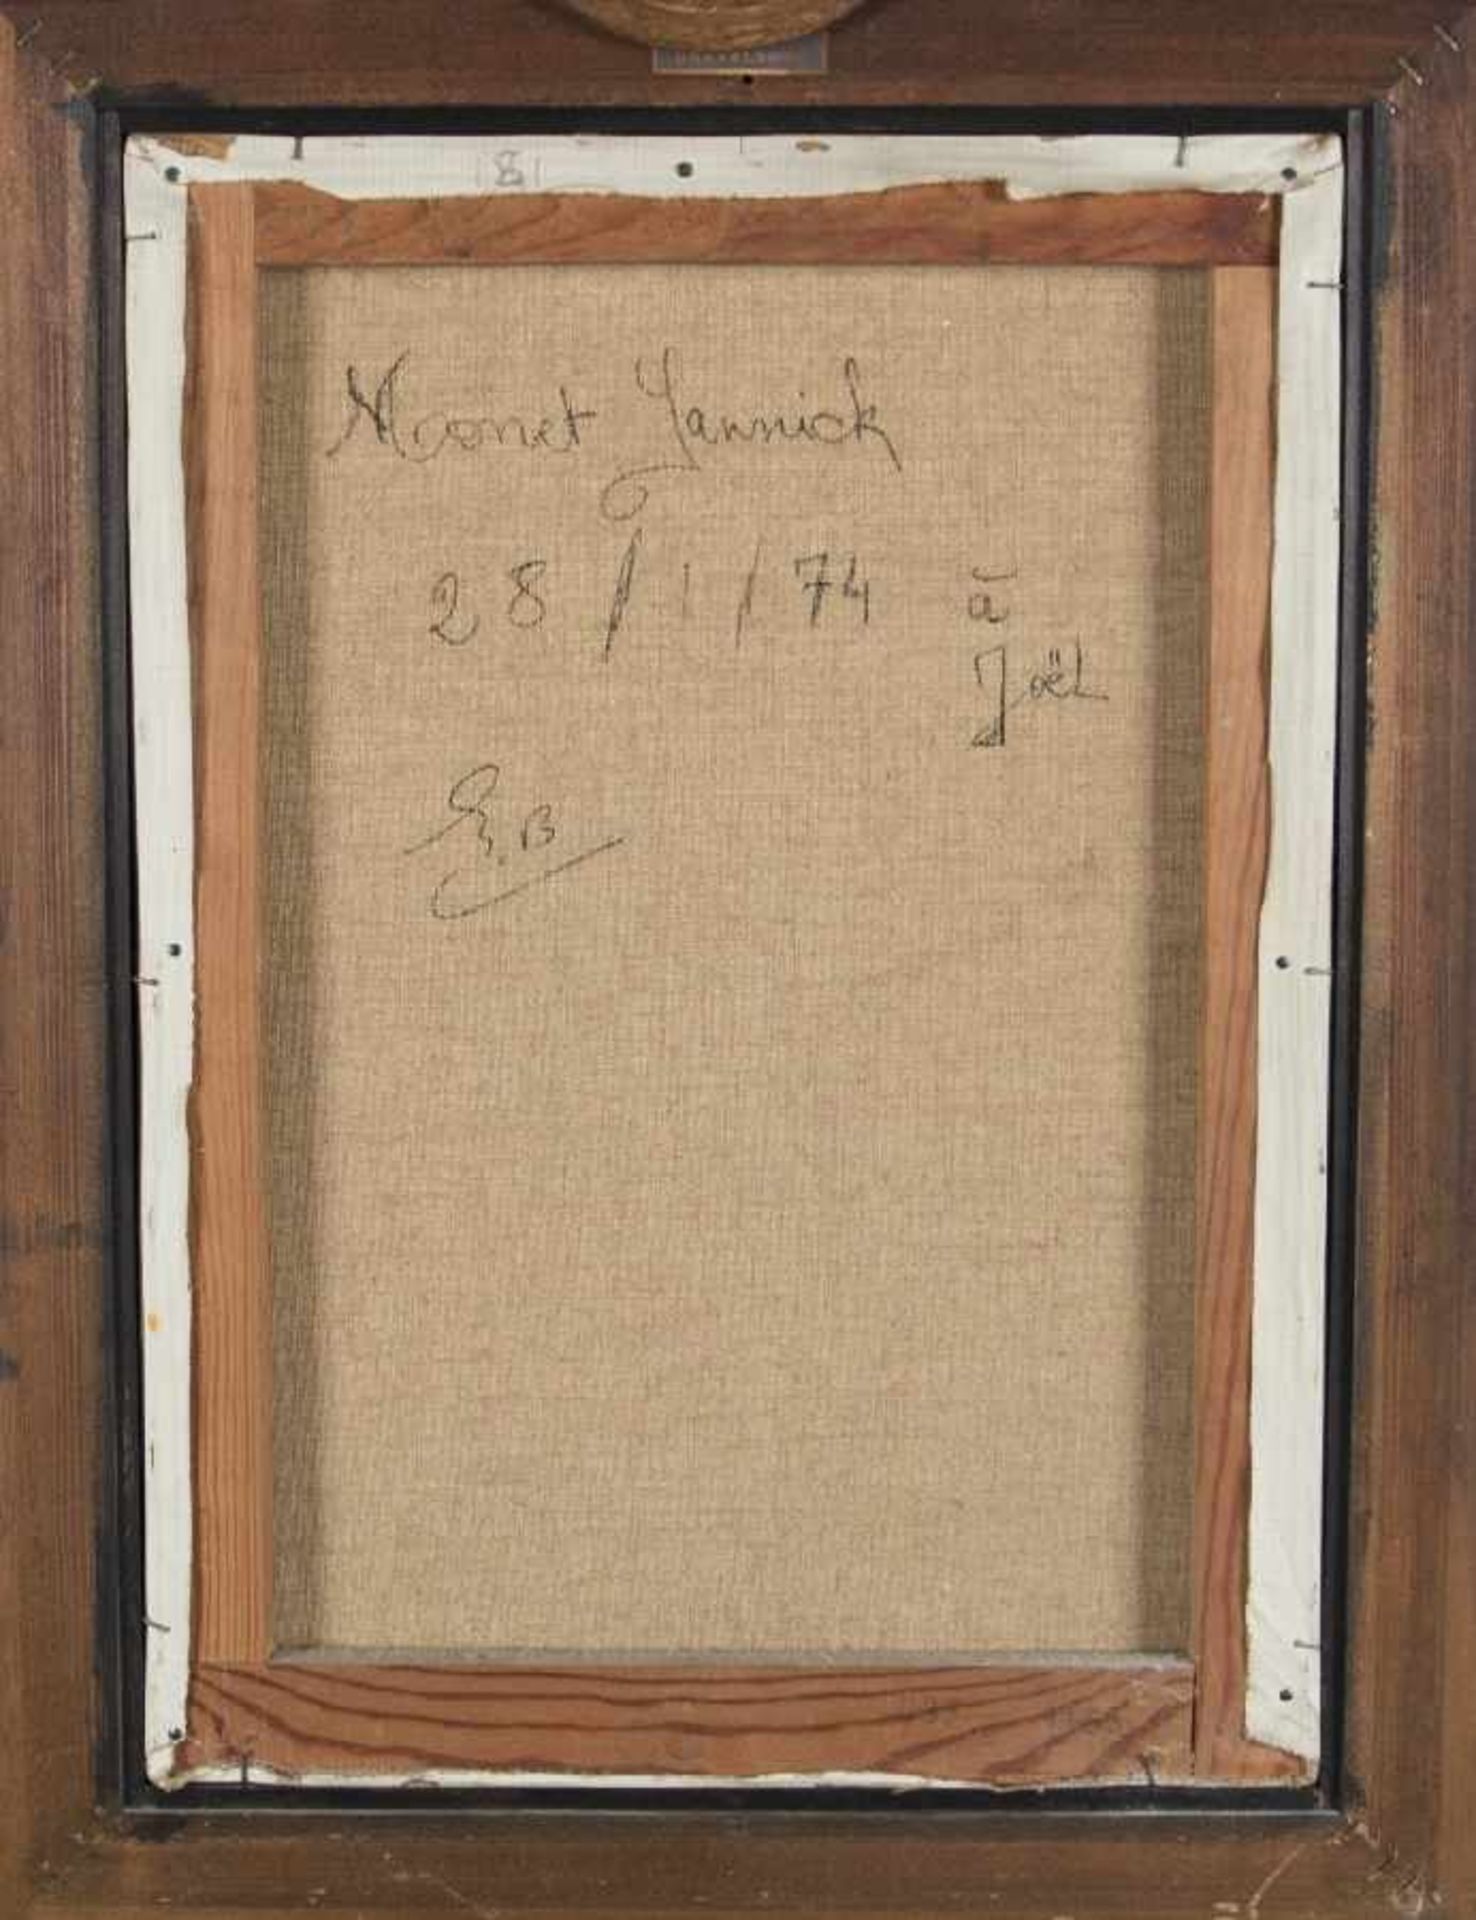 Monet Yannick
28/1/74 à
Joël
E.B